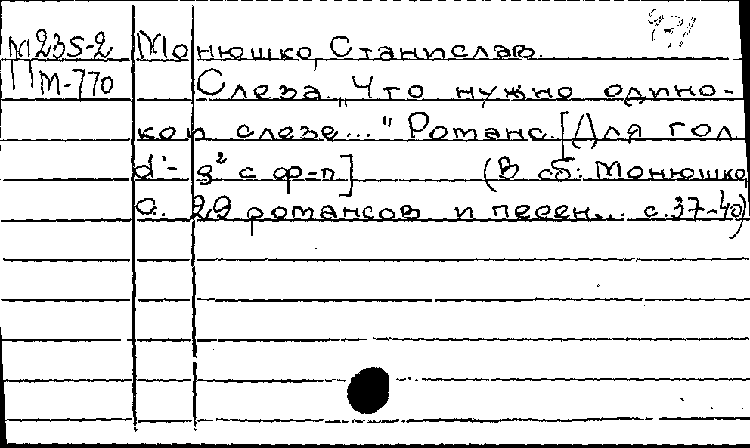 М235-2 Монюшко, Станислав.
М-770 Слеза. „Что нужно одино-
кой слезе..." Романс. [Для гол.
d'- g² с ф-п] (В сб: Монюшко
С. 29 романсов и песен... с. 37-40)